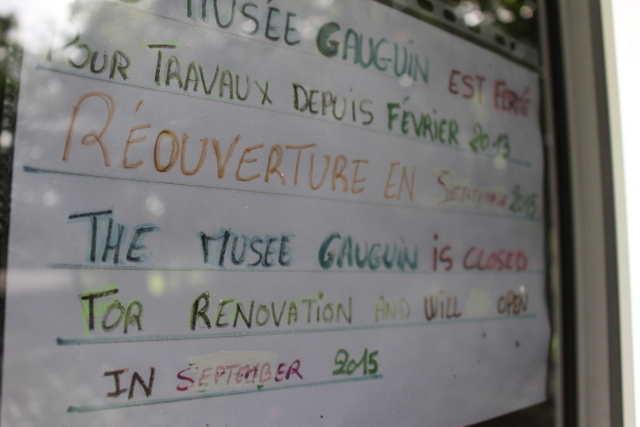 MUSÉE GAUGUIN EST FERMÉ
POUR TRAVAUX DEPUIS FÉVRIER 2013
RÉOUVERTURE EN SEPTEMBRE 2015
THE MUSEE GAUGUIN iS CLOSED
TOR RENOVATION AND WiLL OPEN
IN SEPTEMBER 2015